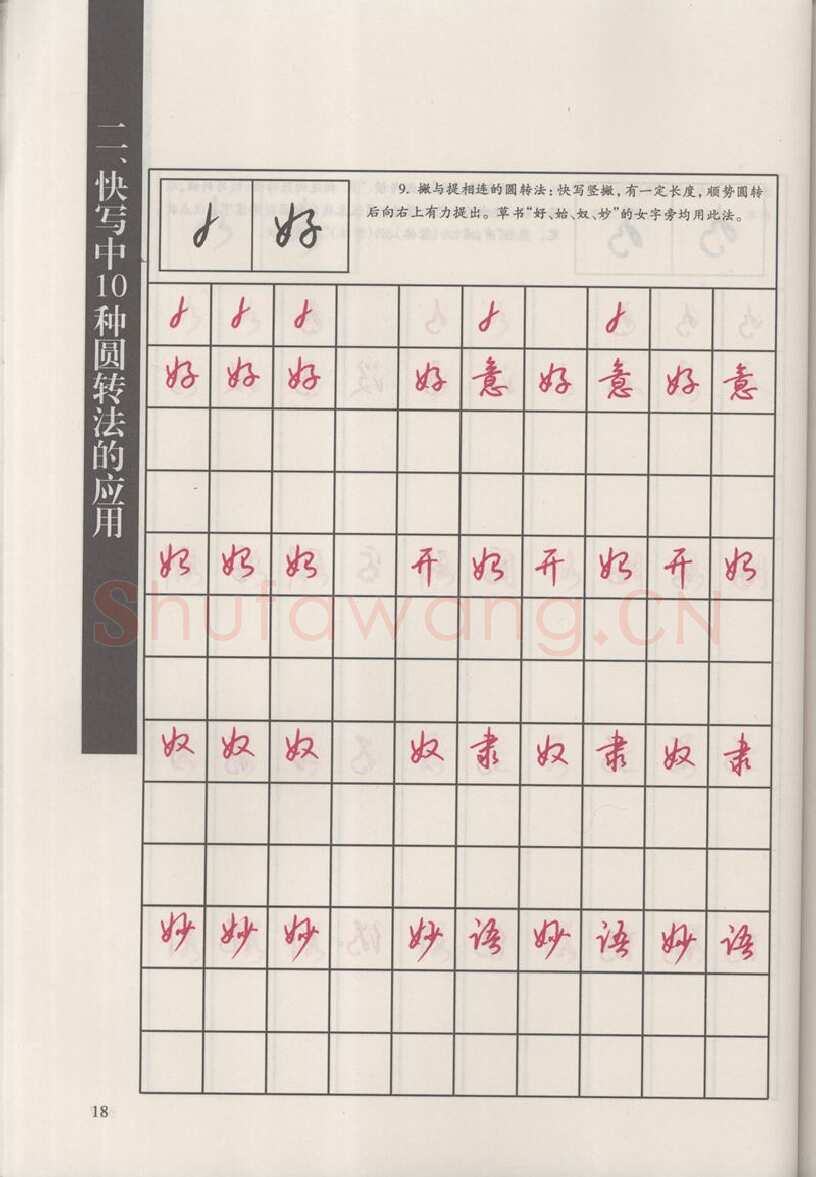 二、快写中10种圆转法的应用
9. 撇与提相连的圆转法：快写竖撇，有一定长度，顺势圆转
后向右上有力提出。草书“好、始、奴、妙”的女字旁均用此法。
好
好 好 好 好 意 好 意 好 意
始 始 始 开 始 开 始 开 始
Shufawang.CN
奴 奴 奴 奴 隶 奴 隶 奴 隶
妙 妙 妙 妙 语 妙 语 妙 语
18